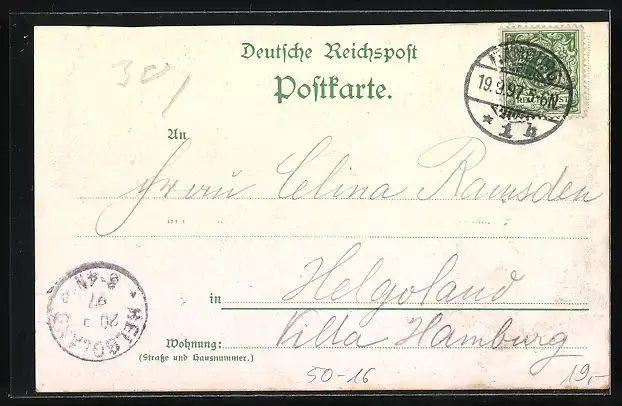 30/
Deutsche Reichspost
Postkarte.
19.9.97.5-6N
* 1 h
An
Frau Celina Ramsden
in Helgoland
Wohnung: Villa Hamburg
(Straße und Hausnummer.)
HELGOLAND
20
97
3-4N
50-16
19,-